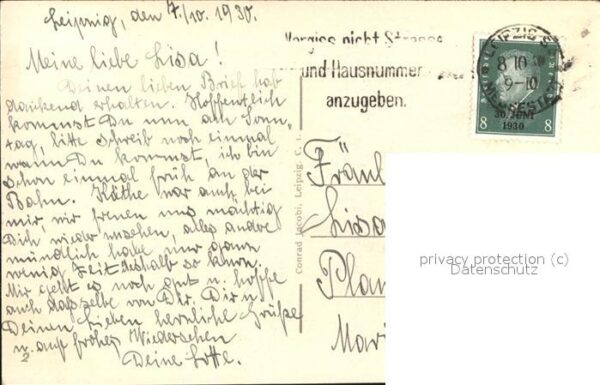 Leipzig, den 7./10. 1930.
Meine liebe Lisa!
Deinen lieben Brief hab
dankend erhalten. Hoffentlich
kommst Du nun am Sonn-
tag, bitte schreib noch einmal
wann Du kommst, ich bin
schon einmal früh an der
Bahn. Käthe war auch bei
mir, wir freuen uns mächtig
Dich wieder zu sehen, alles andre
mündlich habe nur ganz
wenig Zeit deshalb so kurz.
Mir geht es noch gut u. hoffe
auch dasselbe von Dir. Dir u.
Deinen Lieben herzliche Grüße
u. auf frohes Wiedersehen
Deine Lotte.
2
Vergiss nicht Strasse
und Hausnummer
anzugeben.
LEIPZIG
8 10 30
9-10
MESSESTADT
30. JUNI
1930
8 8
Conrad Jacobi, Leipzig. C. 1.
Fräul
Lisa
Plau
Mari
privacy protection (c)
Datenschutz